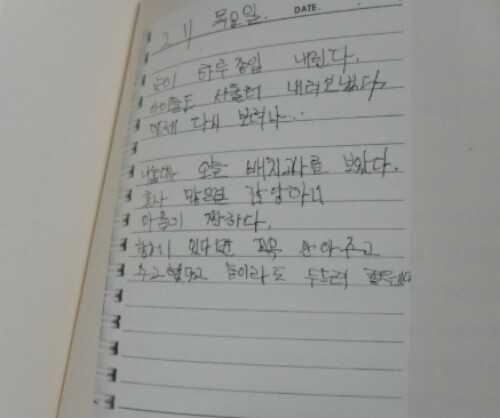 211. 목요일. DATE.
눈이 하루종일 내린다.
아이들도 서울터 내려보냈다
언제 다시 보려나...
오늘 배치고사를 보았다.
혼자 많은걸 감당하니
마음이 짠하다.
함께 있다면 꼬옥 안아주고
수고했다고 등이라도 두드려